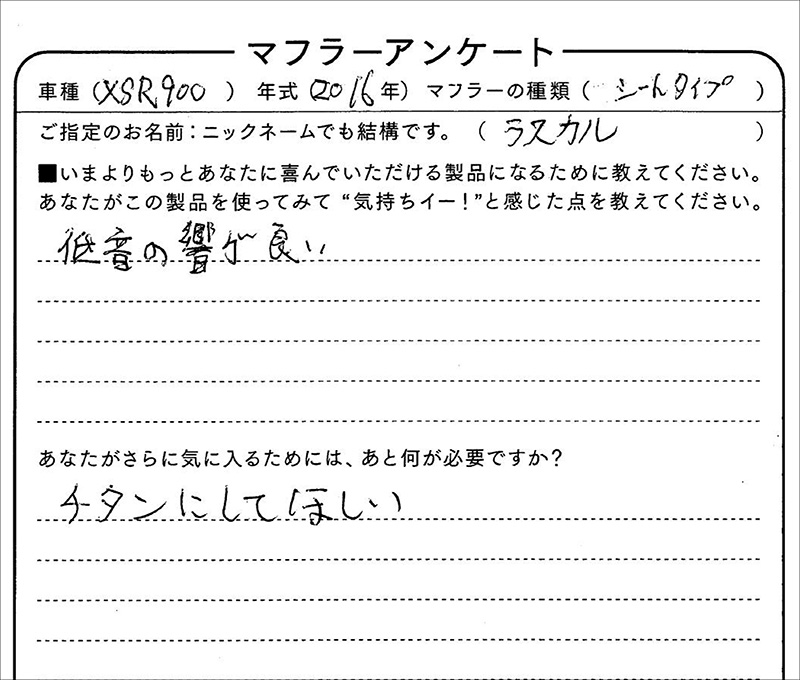 マフラーアンケート
車種（XSR900） 年式（2016年）マフラーの種類（シートタイプ）
ご指定のお名前：ニックネームでも結構です。（ラスカル）
■いまよりもっとあなたに喜んでいただける製品になるために教えてください。
あなたがこの製品を使ってみて“気持ちイー！”と感じた点を教えてください。
低音の響が良い
あなたがさらに気に入るためには、あと何が必要ですか？
チタンにしてほしい